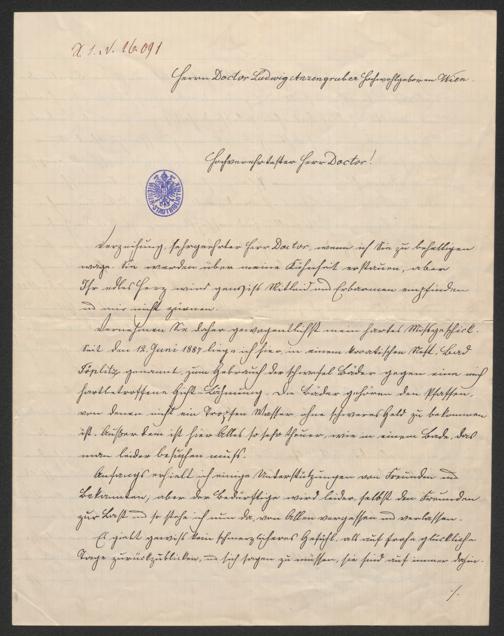 I. N. 16.091
Herrn Doctor Ludwig Anzengruber Hochwohlgeboren Wien.
Hochverehrtester Herr Doctor!
Verzeihung, sehrgeehrter Herr Doctor, wenn ich Sie zu behelligen
wage. Sie werden über meine Kühnheit erstaunen, aber
Ihr edles Herz wird gewiss Mitleid und Erbarmen empfinden
und mir nicht zürnen.
Vernehmen Sie daher gewogentlichst mein hartes Missgeschick.
Seit dem 12. Juni 1887 liege ich hier, in einem kroatischen Nest, Bad
Töplitz genannt, zum Gebrauch der Schwefel Bäder gegen eine mich
hartbetroffene Gicht-Lähmung. Die Bäder gehören den Pfaffen,
von denen nicht ein Tropfen Wasser ohne schweres Geld zu bekommen
ist. Außerdem ist hier Alles so sehr theuer, wie in einem Bade, das
man leider besuchen muß.
Anfangs erhielt ich einige Unterstützungen von Freunden und
Bekannten, aber der Bedürftige wird leider selbst den Freunden
zur Last und so stehe ich nun da, von Allen vergessen und verlassen.
Es giebt gewiss kein schmerzlicheres Gefühl, als auf frohe glückliche
Tage zurückzublicken, und sich sagen zu müssen, sie sind auf immer dahin.
./.